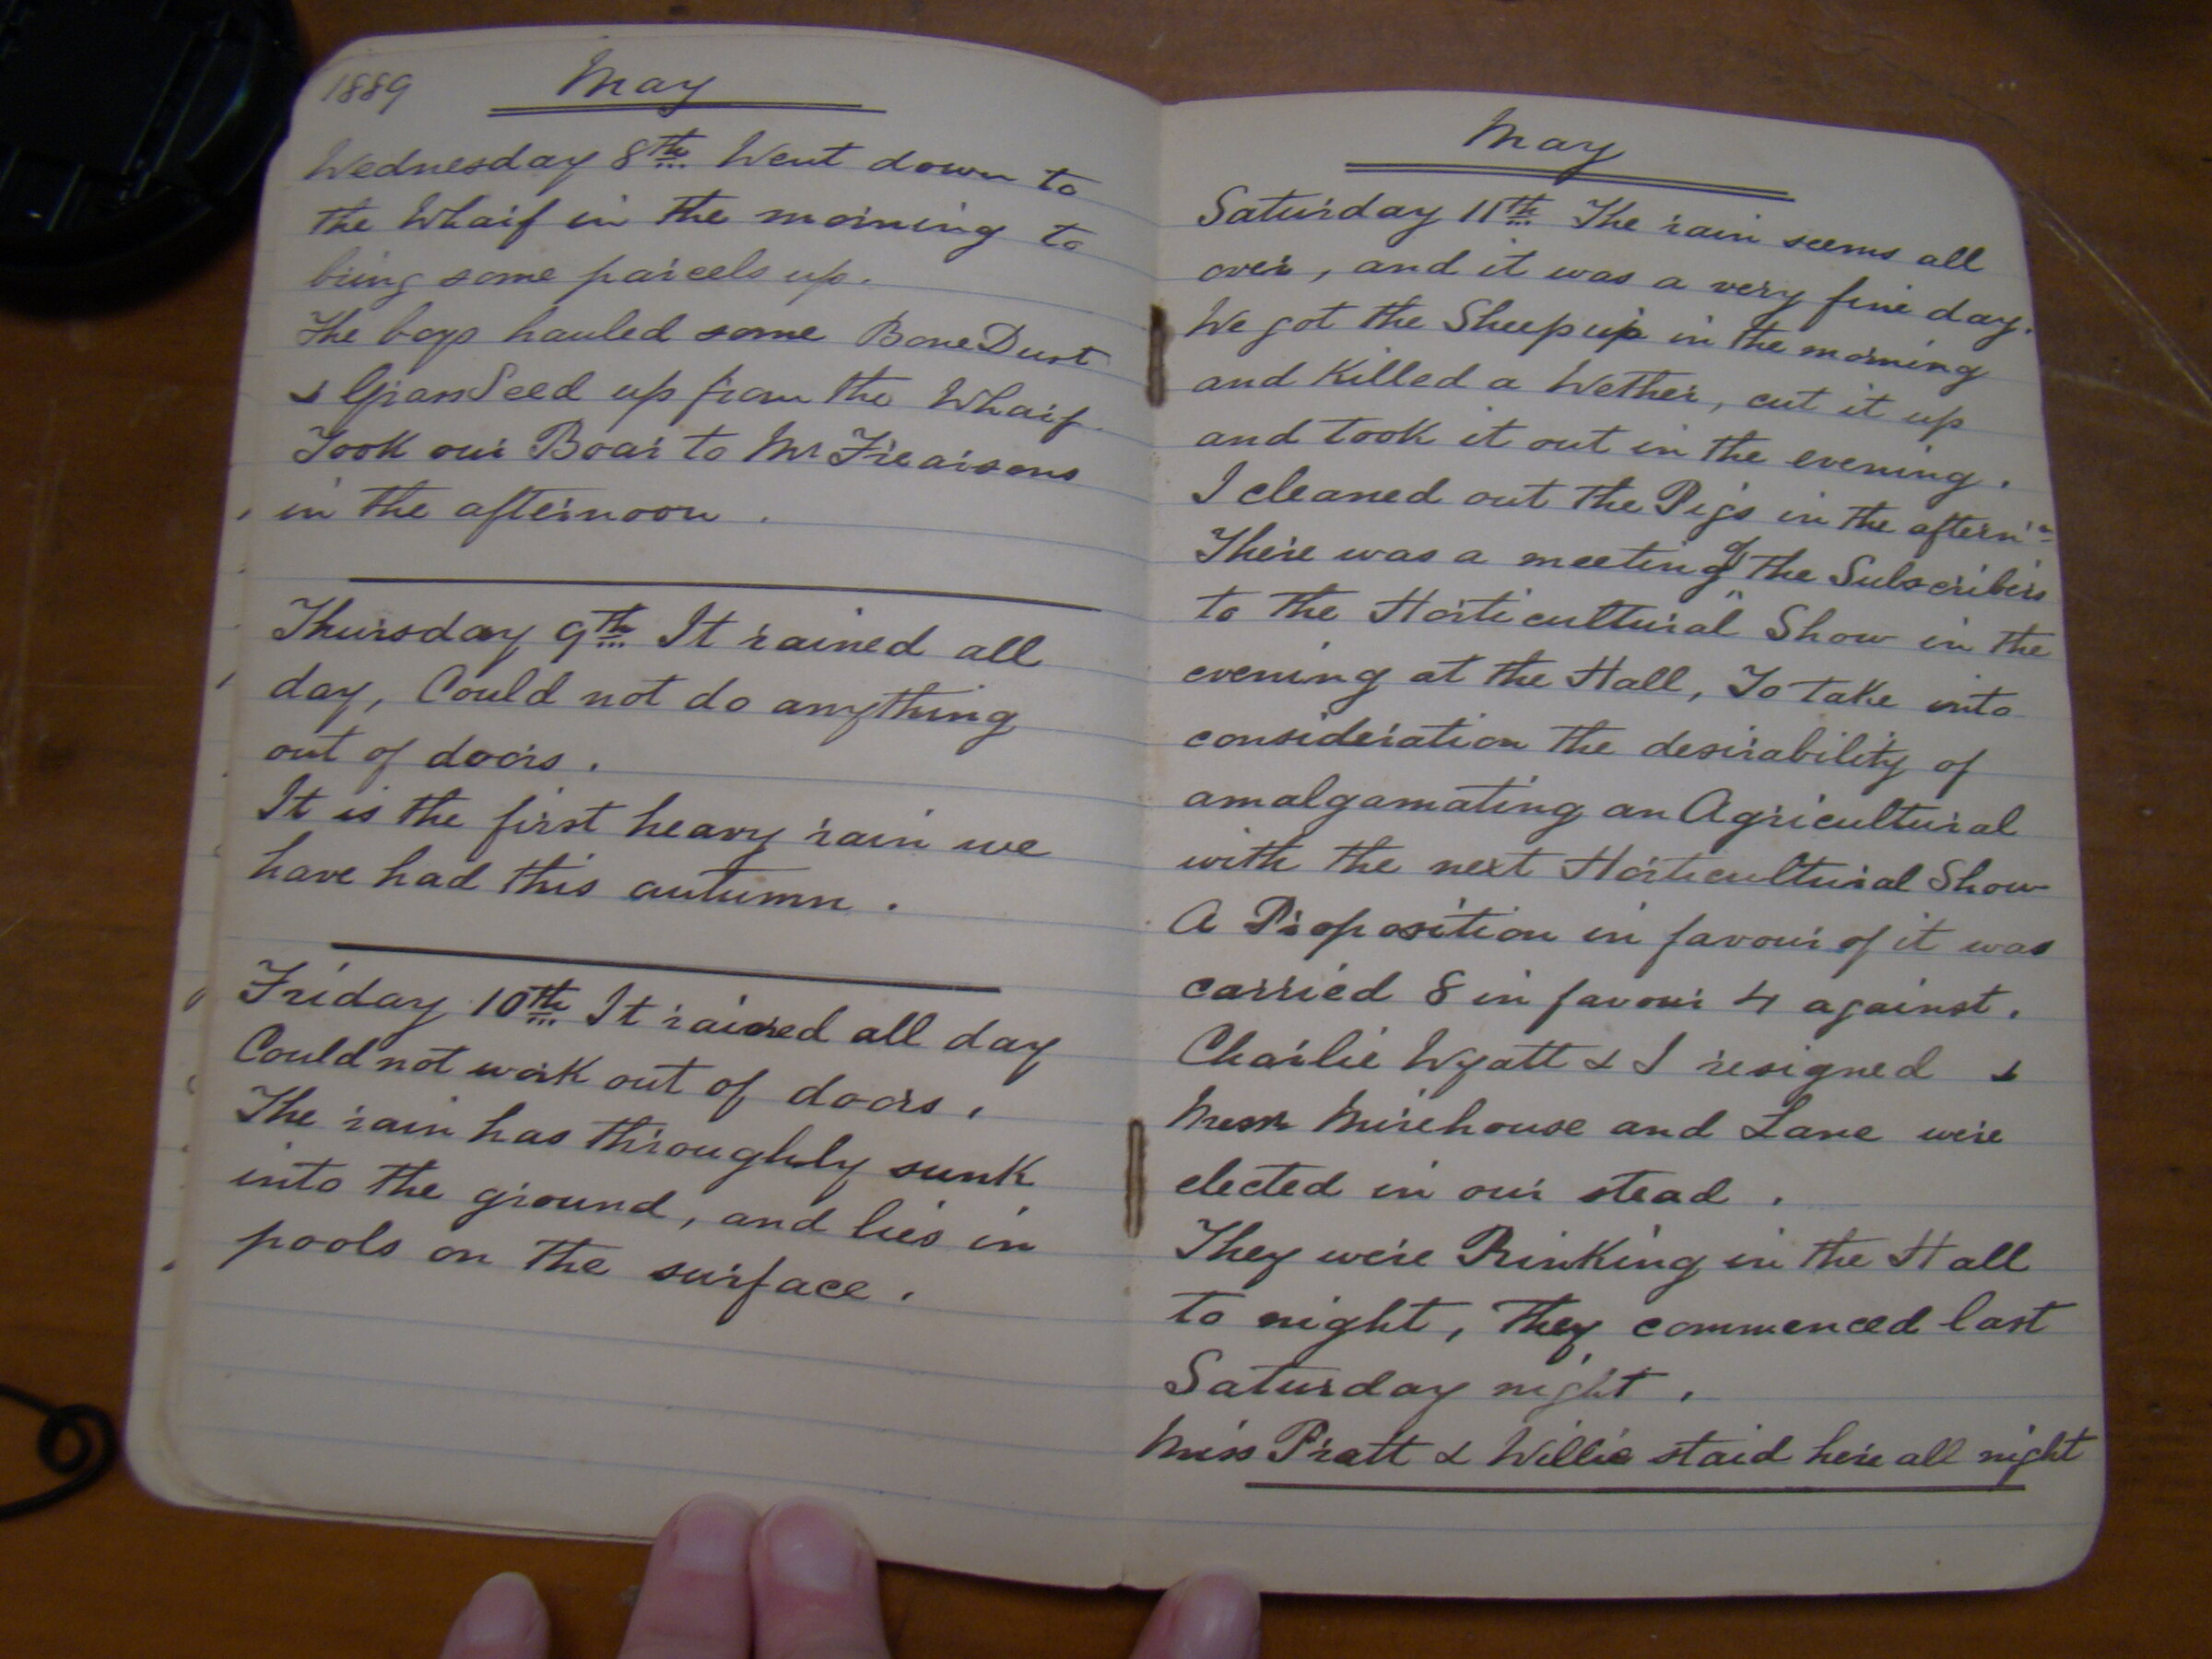 1889 May
Wednesday 8th Went down to
the Wharf in the morning to
bring some parcels up.
The boys hauled some Bone Dust
& Grass Seed up from the Wharf.
Took our Boar to Mr Frearsons
in the afternoon.
Thursday 9th It rained all
day, Could not do anything
out of doors.
It is the first heavy rain we
have had this autumn.
Friday 10th It rained all day
Could not work out of doors.
The rain has throughly sunk
into the ground, and lies in
pools on the surface.
May
Saturday 11th The rain seems all
over, and it was a very fine day.
We got the Sheep up in the morning
and Killed a Wether, cut it up
and took it out in the evening.
I cleaned out the Pigs in the aftern'n
There was a meeting of the Subscribers
to the Horticultural" Show in the
evening at the Hall, To take into
consideration the desirability of
amalgamating an Agricultural
with the next Horticultural Show
A Proposition in favour of it was
carried 8 in favour 4 against.
Charlie Wyatt & I resigned &
Messrs Mirehouse and Lane were
elected in our stead.
They were Rinking in the Hall
to night, They commenced last
Saturday night.
Miss Pratt & Willie staid here all night